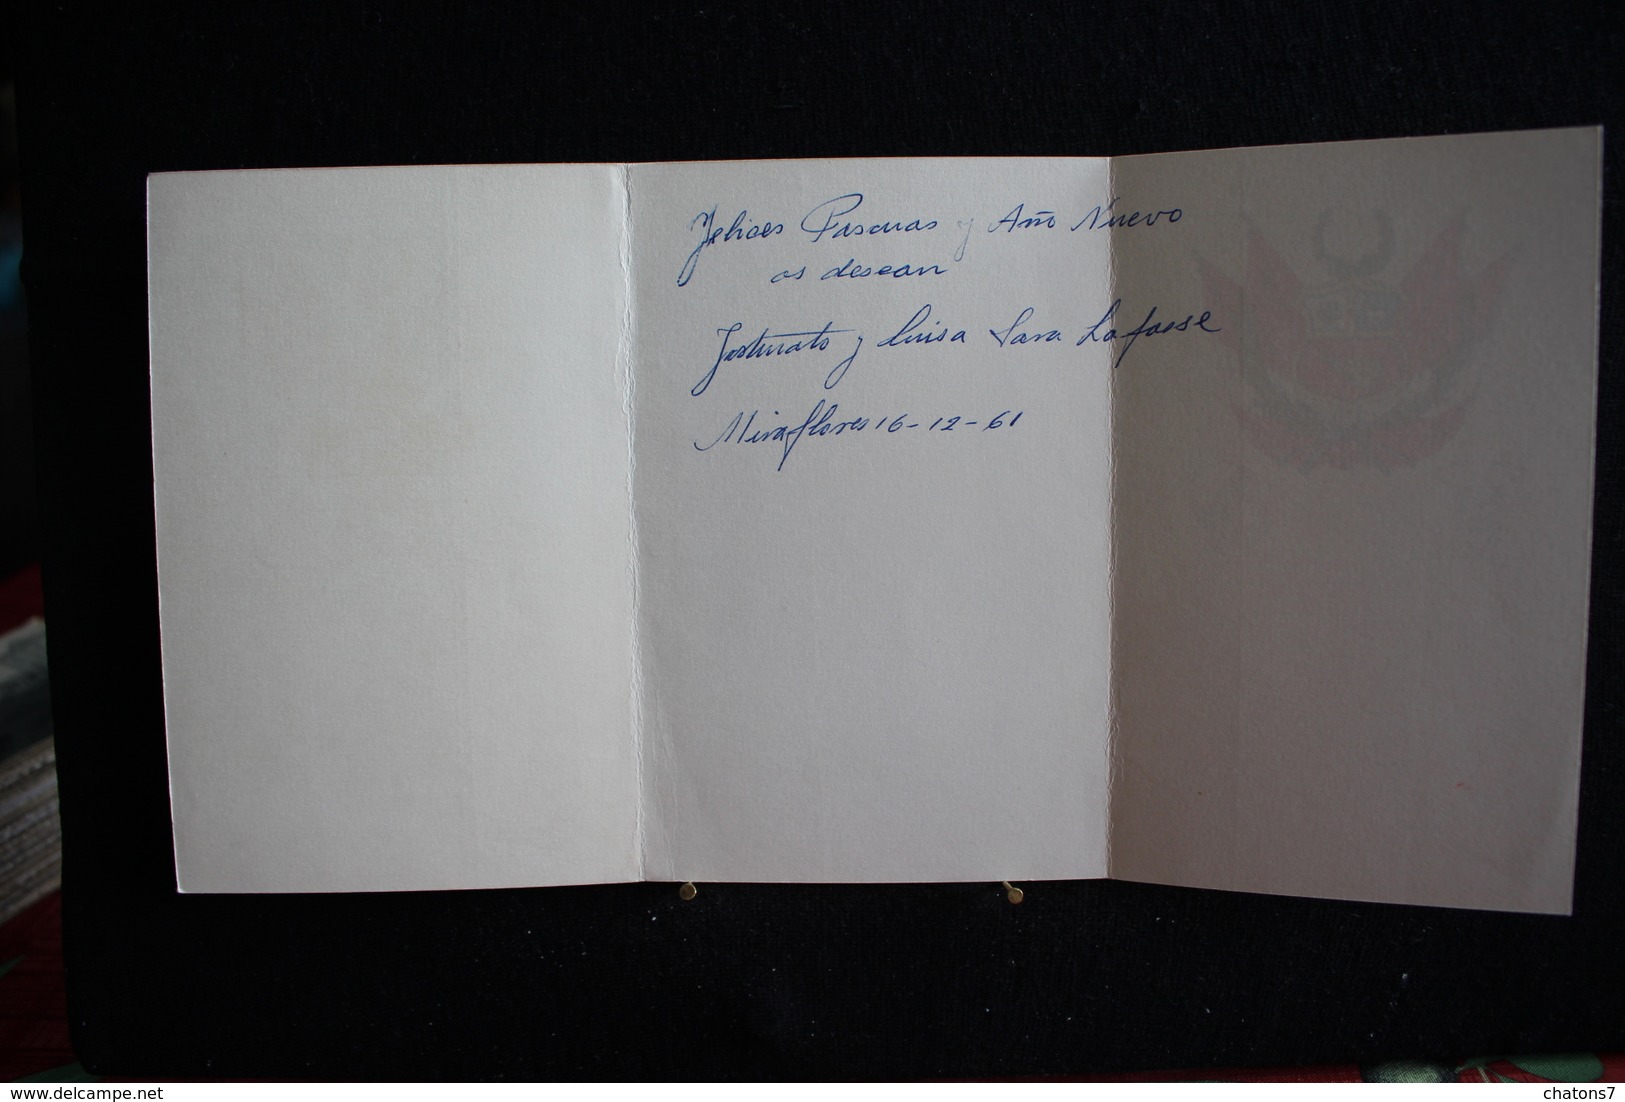 Felices Pascuas y Año Nuevo
os desean
Fortunato y Luisa Sara Lafosse
Miraflores 16-12-61
www.delcampe.net
chatons7